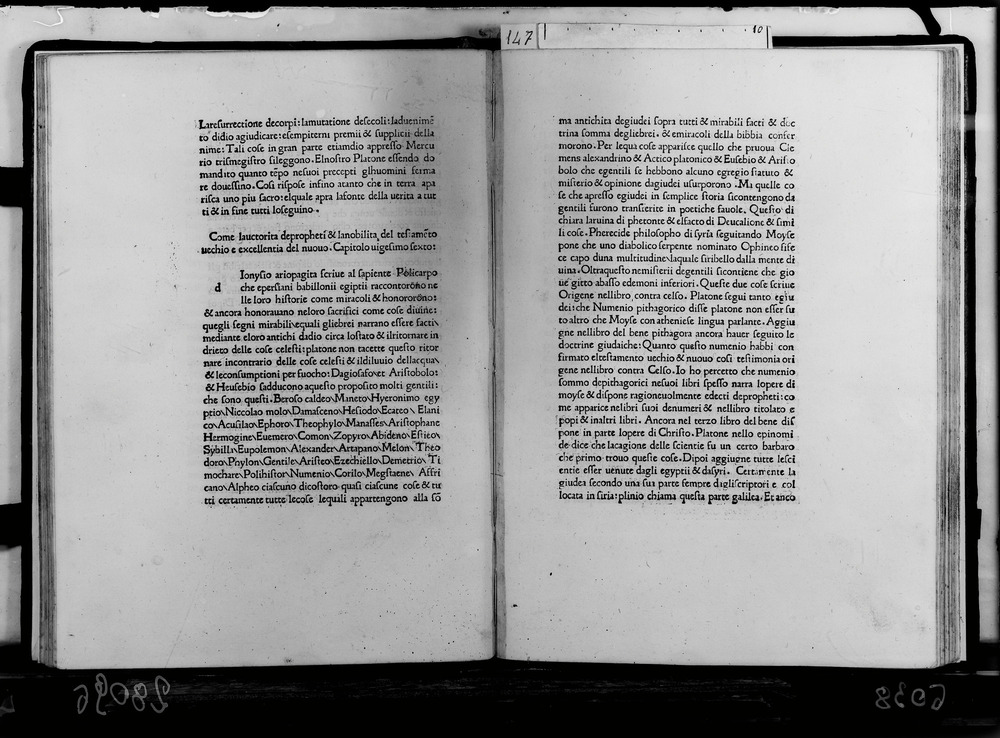 147
10
Laresurrectione decorpi: lamutatione desecoli: laduenimẽ
to didio agiudicare: esempiterni premii & supplicii della
nime: Tali cose in gran parte etiamdio appresso Mercu
rio trismegistro sileggono. Elnostro Platone essendo do
mandito quanto tẽpo nesuoi precepti glhuomini ferma
re douessino. Cosi rispose infino atanto che in terra apa
risca uno piu sacro: elquale apra lafonte della uerita a tut
ti & in fine tutti loseguino.
Come lauctorita deprophetı & lanobilita del testamẽto
uechio e excellentia del nuouo. Capitolo uigesimo sexto:
Ionysio ariopagita scriue al sapiente Policarpo
d che epersiani babillonii egiptii raccontorõno ne
lle loro historie come miracoli & honororõno:
& ancora honorauano neloro sacrifici come cose diuine:
quegli segni mirabili\equali gliebrei narrano essere facti\
mediante eloro antichi dadio circa lostato & ilritornare in
drieto delle cose celesti: platone non tacette questo ritor
nare incontrario delle cose celesti & ildiluuio dellacqua\
& leconsumptioni per fuocho: Dagiosafo\et Aristobolo:
& Heusebio sadducono aquesto proposito molti gentili:
che sono questi. Beroso caldeo\Maneto\Hyeronimo egy
ptio\Niccolao molo\Damasceno\Hesiodo\Ecateo\ Elani
co\Acusilao\Ephoro\Theophylo\Manasses\Aristophane
Hermogine\Euemero\Comon\Zopyro\Abideno\Estieo\
Sybilla\Eupolemon\Alexander\Artapano\Melon\Theo
doro\Phylon\Gentile\Aristeo\Ezechiello\Demetrio\ Ti
mochare\Polihistor\Numenio\Corilo\Megstaene\ Affri
cano\Alpheo ciascuno dicostoro quasi ciascune cose & tu
tti certamente tutte lecose lequali appartengono alla sõ
ma antichita degiudei sopra tutti & mirabili facti & doc
trina somma degliebrei. & emiracoli della bibbia confer
morono. Per lequa cose apparisce quello che pruoua Cle
mens alexandrino & Actico platonico & Eusebio & Aristo
bolo che egentili se hebbono alcuno egregio statuto &
misterio & opinione dagiudei usurporono. Ma quelle co
se che apresso egiudei in semplice storia sicontengono da
gentili furono transferite in poetiche fauole. Questo di
chiara laruina di phetonte & elsacto di Deucalione & simi
li cose. Pherecide philosopho di syria seguitando Moyse
pone che uno diabolico serpente nominato Ophineo fisse
ce capo duna multitudine\laquale siribello dalla mente di
uina. Oltraquesto nemisterii degentili sicontiene che gio
ue gitto abasso edemoni inferiori. Queste due cose scriue
Origene nellibro contra celso. Platone segui tanto egiu
dei: che Numenio pithagorico disse platone non esser su
to altro che Moyse con atheniese lingua parlante. Aggiu
gne nellibro del bene pithagora ancora hauer seguito le
doctrine giudaiche: Quanto questo numenio habbi con
firmato eltestamento uechio & nuouo cosi testimonia ori
gene nellibro contra Celso. Io ho percetto che numenio
sommo depithagorici nesuoi libri spesso narra lopere di
moyse & dispone ragioneuolmente edecti depropheti: co
me apparice nelibri suoi denumeri & nellibro titolato e
popi & inaltri libri. Ancora nel terzo libro del bene dis
pone in parte lopere di Christo. Platone nello epinomi
de dice che lacagione delle scientie fu un certo barbaro
che primo trouo queste cose. Dipoi aggiugne tutte lesci
entie esser uenute dagli egyptii & dasyri. Certamente la
giudea secondo una sua parte sempre dagliscriptori e col
locata in siria: plinio chiama questa parte galilea. Et anco
28096
6038